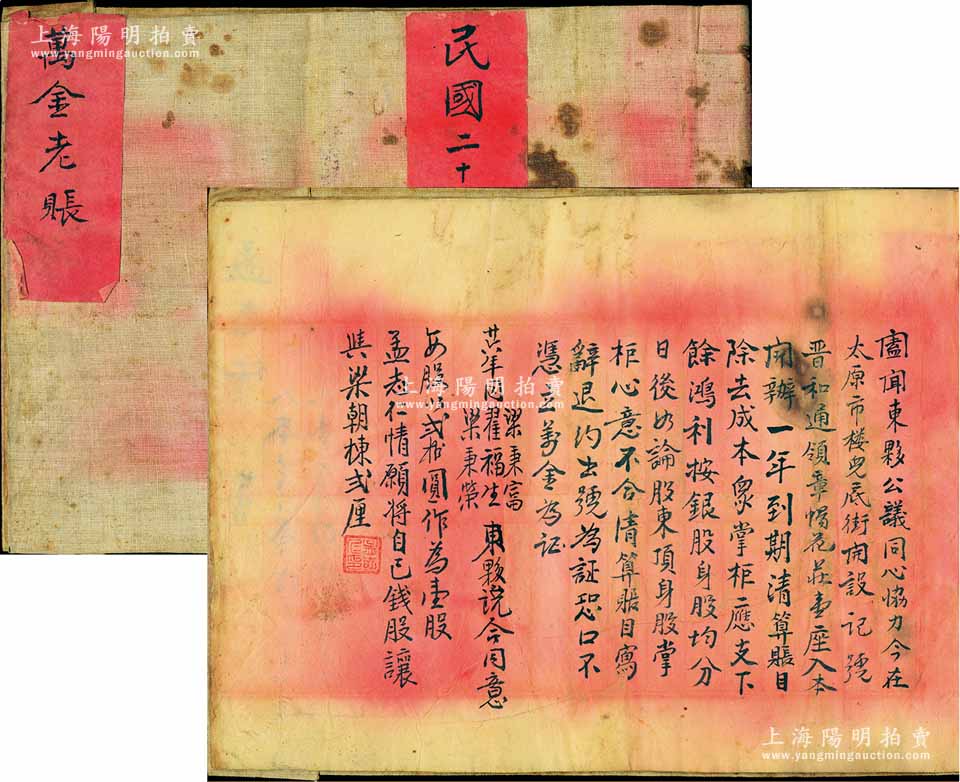 上海陽明拍賣
www.yangmingauction.com
民國二十
萬金老賬
盍聞東夥公議同心恊力今在
太原市楼兒底街開設 記號
晋和通領章帽花莊壹座入本
開辦一年到期清算賬目
除去成本衆掌柜應支下
餘鴻利按銀股身股均分
日後如論股東頂身股掌
柜心意不合清算賬目寫
辭退约出號為証恐口不
憑立萬金為证
梁秉富
翟福生東夥说合同意
梁秉榮
每股弍拾圓作為壹股
孟老仁情願將自已钱股讓
與梁朝棟弍厘
上海陽明拍賣
www.yangmingauction.com
上海陽明拍賣
www.yangmingauction.com
上海陽明拍賣
www.yangmingauction.com